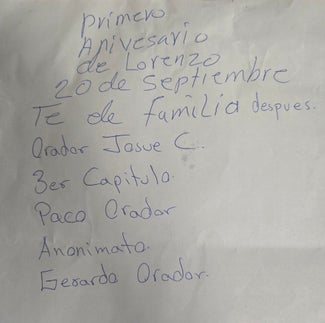 primero
Anivesario
de Lorenzo
20 de septiembre
Te de familia despues.
Orador Josue C.
3er Capitulo.
Paco Orador
Anonimato.
Gerardo Orador.